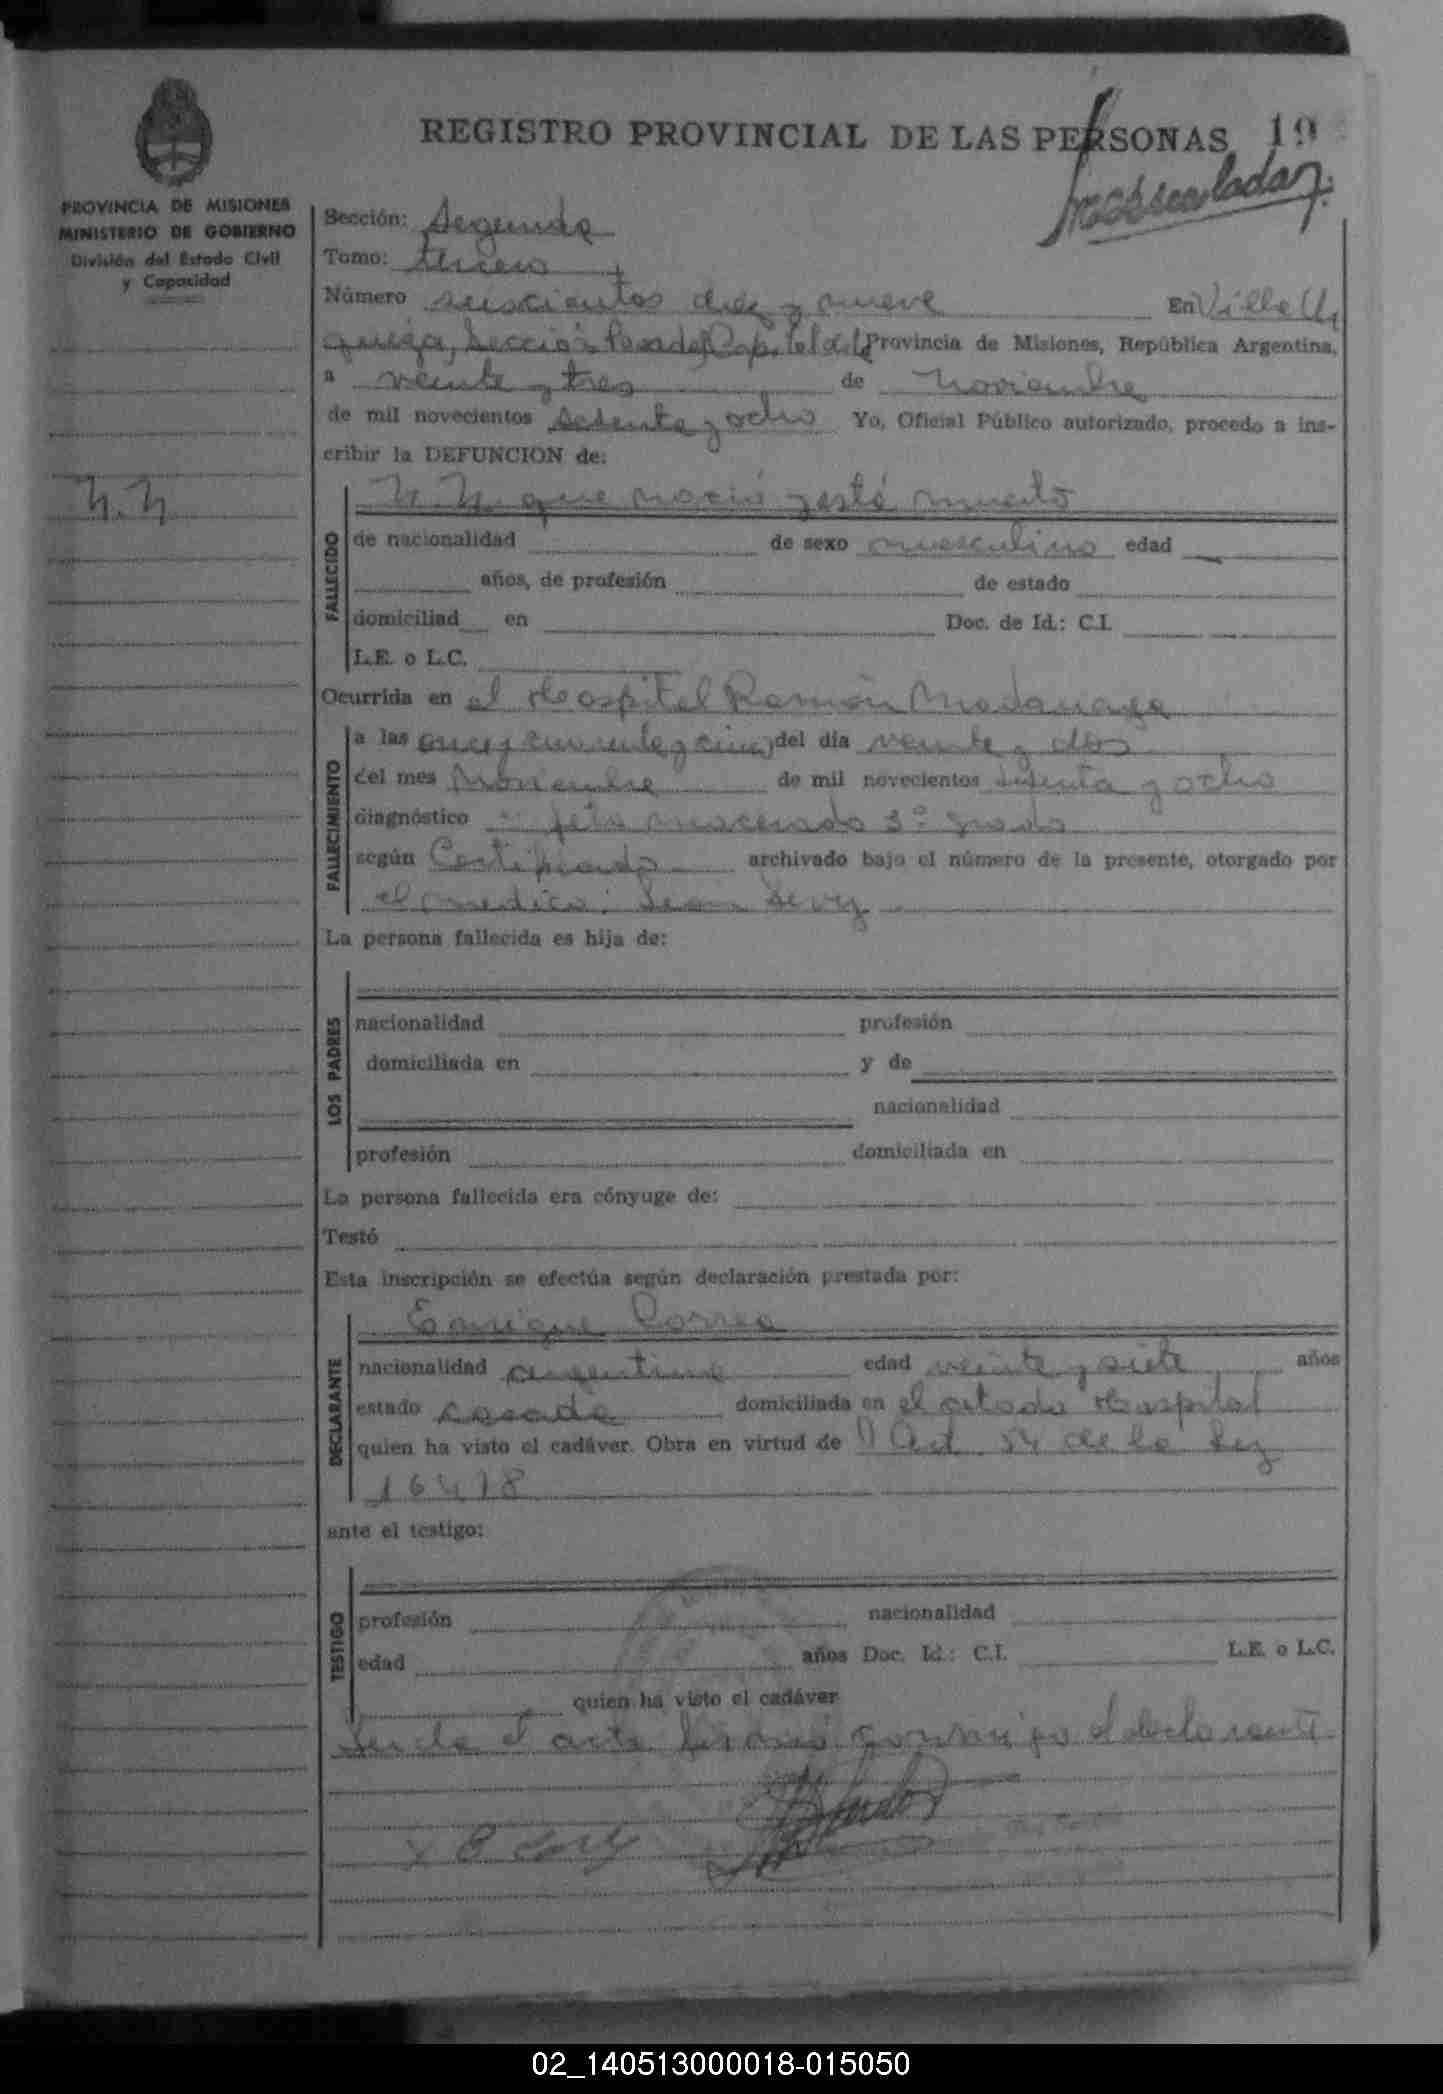 REGISTRO PROVINCIAL DE LAS PERSONAS 19
PROVINCIA DE MISIONES
MINISTERIO DE GOBIERNO
División del Estado Civil
y Capacidad
N.N
Sección: Segunda
Tomo: tercero
Número seiscientos diez y nueve En Villa Ur
quiza, Sección Posadas Capital de la Provincia de Misiones, República Argentina,
a veinte y tres de Noviembre
de mil novecientos setenta y ocho Yo, Oficial Público autorizado, procedo a ins-
cribir la DEFUNCION de:
FALLECIDO
N.N. que nació y esté muerto
de nacionalidad de sexo masculino edad
años, de profesión de estado
domiciliad en Doc. de Id.: C.I.
L.E. o L.C.
Ocurrida en el Hospital Ramón Madariaga
FALLECIMIENTO
a las once y cuarenta y cinco del día veinte y dos
del mes Noviembre de mil novecientos setenta y ocho
diagnóstico feto macerado 3º grado
según Certificado archivado bajo el número de la presente, otorgado por
el medico:
La persona fallecida es hija de:
LOS PADRES
nacionalidad profesión
domiciliada en y de
nacionalidad
profesión domiciliada en
La persona fallecida era cónyuge de:
Testó
Esta inscripción se efectúa según declaración prestada por:
DECLARANTE
Enrique Correa
nacionalidad argentina edad veinte y siete años
estado casado domiciliada en el citado Hospital
quien ha visto el cadáver. Obra en virtud de Art. 54 de la Ley
16478
ante el testigo:
TESTIGO
profesión nacionalidad
edad años Doc. Id.: C.I. L.E. o L.C.
quien ha visto el cadáver
el acta firmó conmigo el declarante
02_140513000018-015050